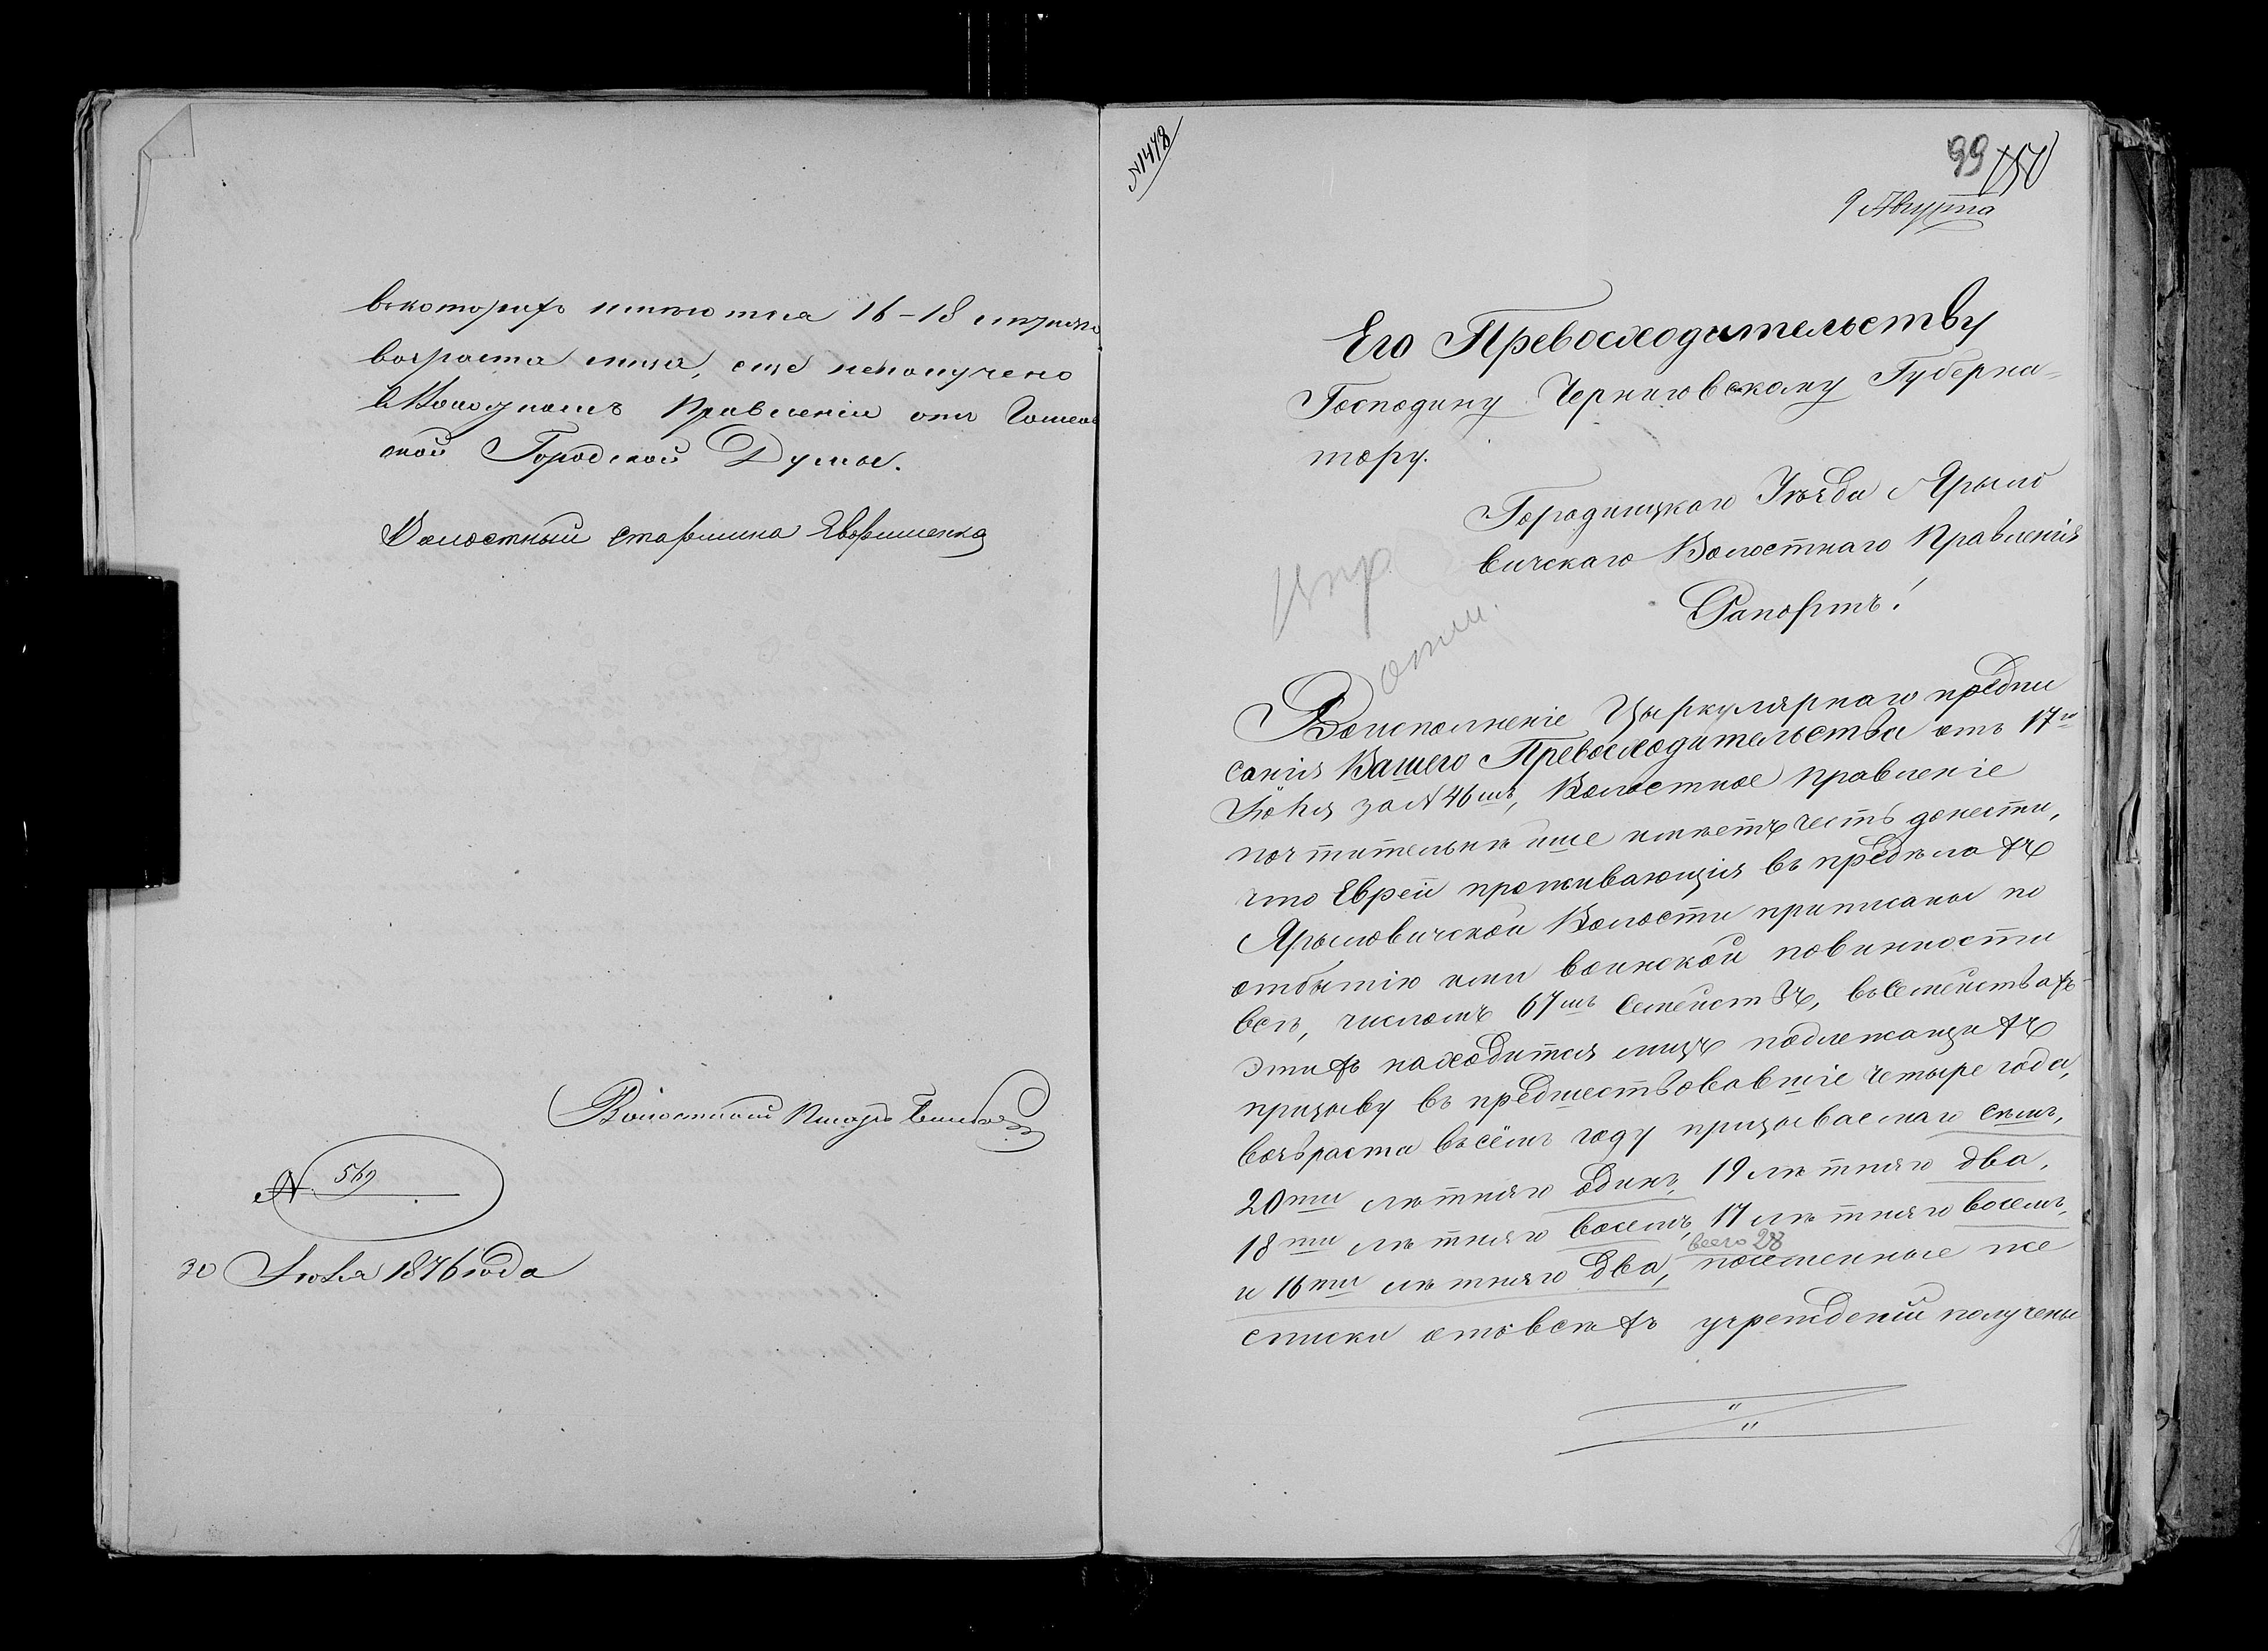 въкоторихъ имѣются 16-18 лѣтняго
возроста лица, еще неполучено
въ Волостномъ Правленіи отъ Гомель
ской Городской Думы.
Волостный старшина
Волостный Писарь
№ 569
30 Июля 1876 года
№1478
99 150
9 Августа
Его Превосходительству
Господину Черниговскому Губерна-
тору.
Городницкаго Уѣзда Ярыло
вичскаго Волостнаго Правленія
Рапортъ!
Воисполненіе Цыркулярнаго предпи
санія Вашего Превосходительства отъ 17го
Іюня за № 46мъ, Волостное Правленіе
почтительнѣйше имѣетъ честь донести,
что Евреи проживающія въ предѣлахъ
Ярыловичской Волости приписаны по
отбытію ими воинской повинности
всѣ, числомъ 67мъ семействъ, въсемействахъ
этихъ находится лицъ подлежащихъ
призыву въ предшествовавшіе четыре года,
возъраста въсёмъ году призываемаго семь,
20ти лѣтняго одинъ, 19 лѣтняго два,
18ти лѣтняго восемъ, 17 лѣтняго восемъ,
всего 28
и 16ти лѣтняго два, посеменные же
списки отовсѣхъ учрежденій получены